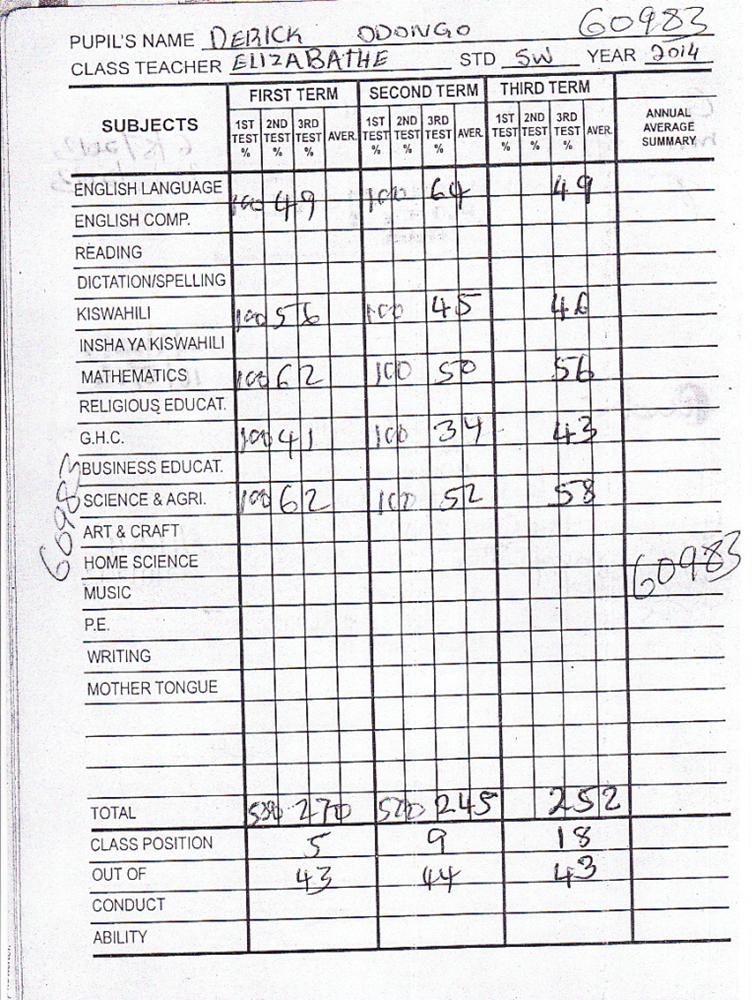 60983
PUPIL'S NAME DERICK ODONGO
CLASS TEACHER ELIZABATHE STD 5W YEAR 2014
SUBJECTS FIRST TERM SECOND TERM THIRD TERM ANNUAL AVERAGE SUMMARY
1ST TEST % 2ND TEST % 3RD TEST % AVER. 1ST TEST % 2ND TEST % 3RD TEST % AVER. 1ST TEST % 2ND TEST % 3RD TEST % AVER.
ENGLISH LANGUAGE 100 49 100 64 49
ENGLISH COMP.
READING
DICTATION/SPELLING
KISWAHILI 100 56 100 45 46
INSHA YA KISWAHILI
MATHEMATICS 100 62 100 50 56
RELIGIOUS EDUCAT.
G.H.C. 100 41 100 34 43
BUSINESS EDUCAT.
60983
SCIENCE & AGRI. 100 62 100 52 58
ART & CRAFT
HOME SCIENCE 60983
MUSIC
P.E.
WRITING
MOTHER TONGUE
TOTAL 270 245 252
CLASS POSITION 5 9 18
OUT OF 43 44 43
CONDUCT
ABILITY